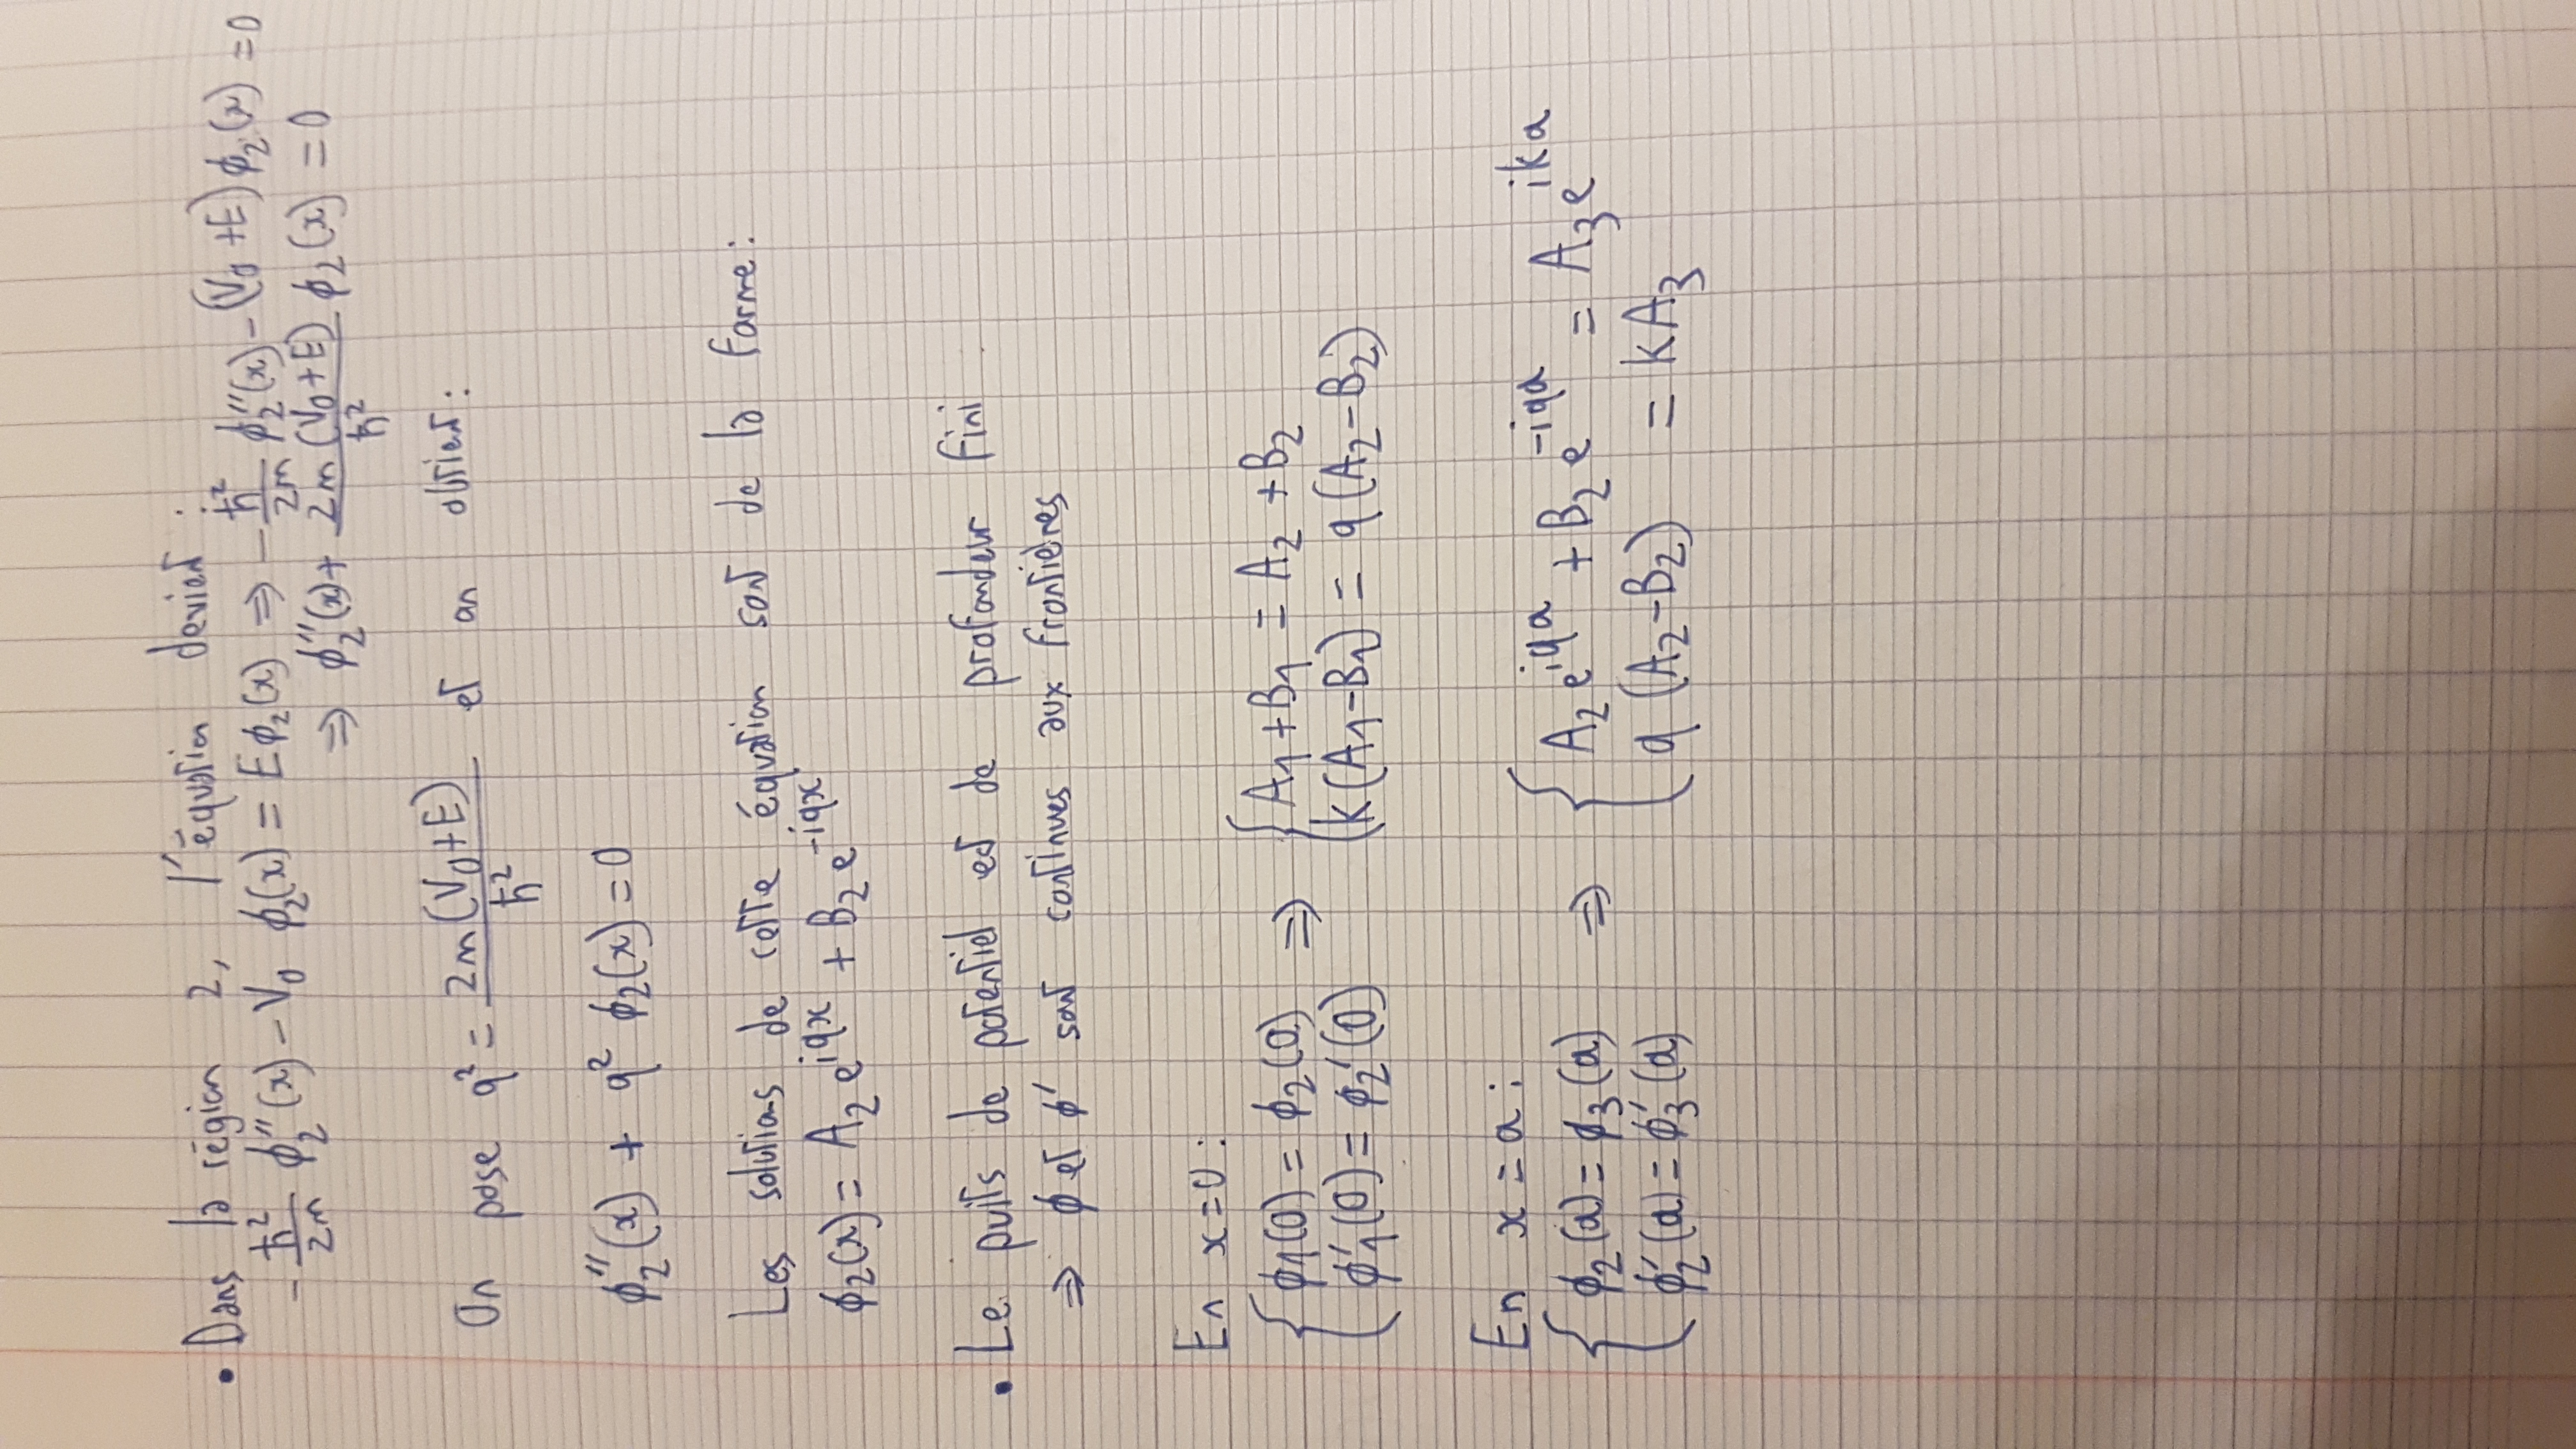 • Dans la région 2, l'équation devient :
-ħ²/2m ϕ₂''(x) - V₀ ϕ₂(x) = Eϕ₂(x) ⇒ -ħ²/2m ϕ₂''(x) - (V₀+E)ϕ₂(x) = 0
⇒ ϕ₂''(x) + 2m(V₀+E)/ħ² ϕ₂(x) = 0
On pose q² = 2m(V₀+E)/ħ² et on obtient :
ϕ₂''(x) + q² ϕ₂(x) = 0
Les solutions de cette équation sont de la forme :
ϕ₂(x) = A₂ e^{iqx} + B₂ e^{-iqx}
• Le puits de potentiel est de profondeur fini
⇒ ϕ et ϕ' sont continues aux frontières
En x=0 :
{ ϕ₁(0) = ϕ₂(0) ⇒ { A₁+B₁ = A₂+B₂
{ ϕ₁'(0) = ϕ₂'(0) { k(A₁-B₁) = q(A₂-B₂)
En x=a :
{ ϕ₂(a) = ϕ₃(a) ⇒ { A₂ e^{iqa} + B₂ e^{-iqa} = A₃ e^{ika}
{ ϕ₂'(a) = ϕ₃'(a) { q (A₂-B₂) = kA₃